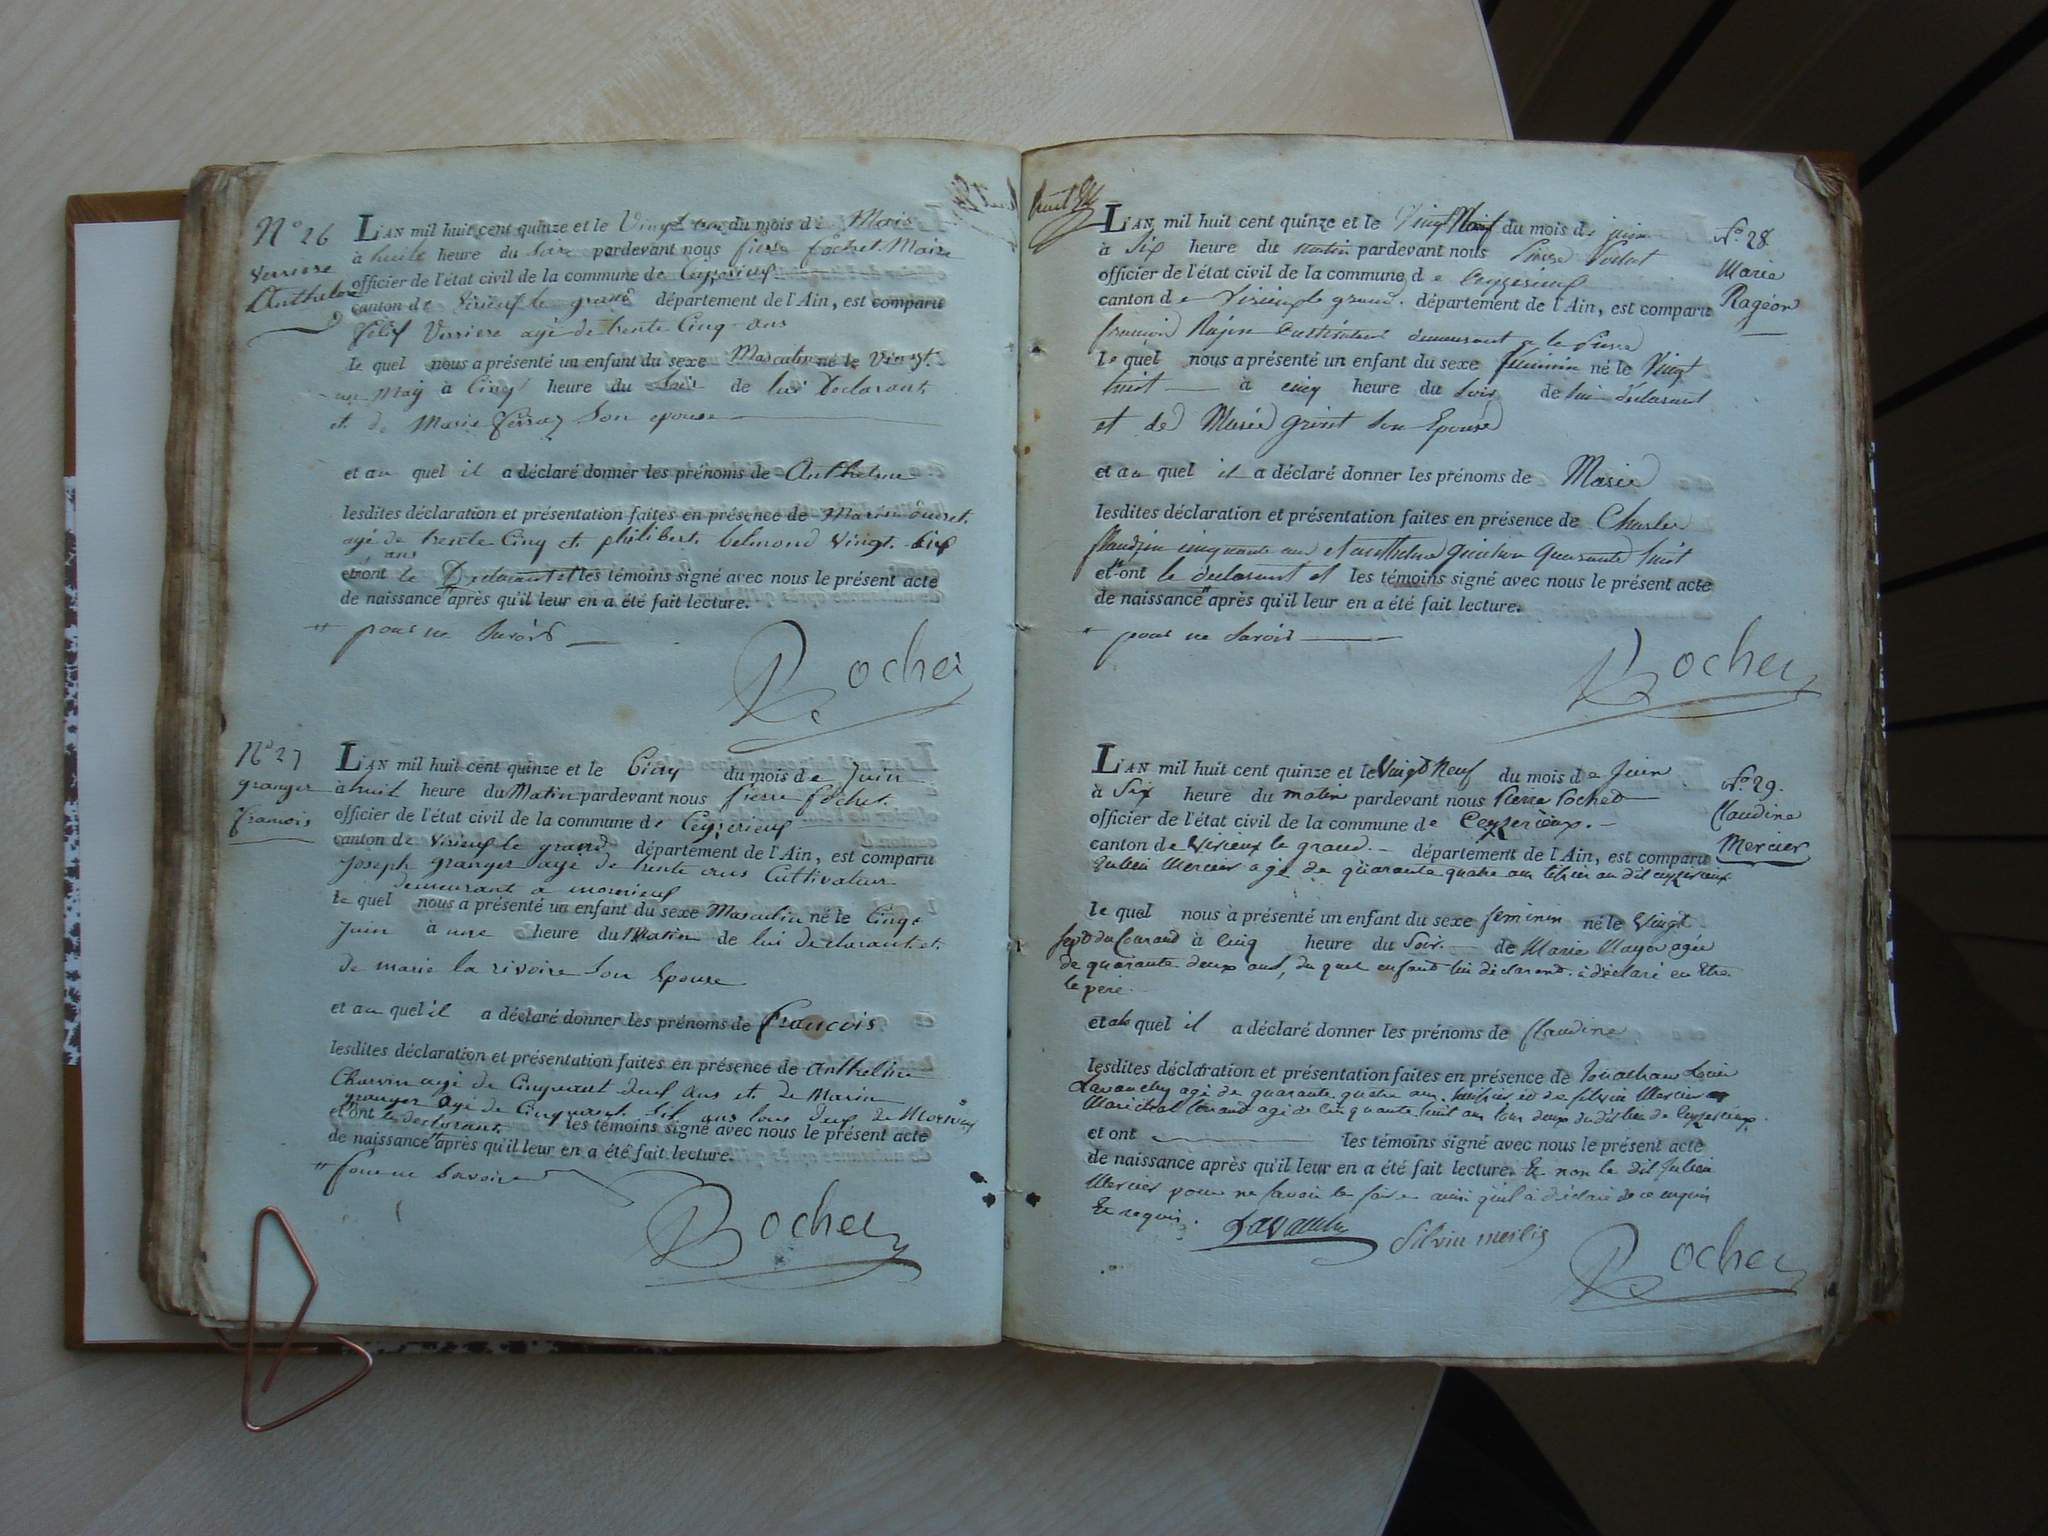 N° 26
Verriere
Anthelme
L'AN mil huit cent quinze et le Vingt un du mois de Mais
à huit heure du Soir pardevant nous pierre pochet Maire
officier de l'état civil de la commune de Ceyzerieux
canton de Virieux le grand département de l'Ain, est comparu
félix Verriere agé de trente Cinq ans
le quel nous a présenté un enfant du sexe Masculin né le Vingt
un May à Cinq heure du Soir de lui Declarant
et de Marie ferraz Son epouse
et au quel il a déclaré donner les prénoms de Anthelme
lesdites déclaration et présentation faites en présence de Marin
agé de trente Cinq et philibert belmond Vingt Six
ans
et n'ont le Declarant et les témoins signé avec nous le présent acte
de naissance " après qu'il leur en a été fait lecture.
" pour ne Savoir
Pochet
N° 27
granger
francois
L'AN mil huit cent quinze et le Cinq du mois de Juin
à huit heure du Matin pardevant nous pierre pochet
officier de l'état civil de la commune de Ceyzerieux
canton de Virieux le grand département de l'Ain, est comparu
Joseph granger agé de trente ans Cultivateur
demeurant a morvieux
le quel nous a présenté un enfant du sexe Masculin né le Cinq
Juin à une heure du Matin de lui declarant et
de marie la rivoire Son Epouse
et au quel il a déclaré donner les prénoms de francois
lesdites déclaration et présentation faites en présence de anthelme
Charvin agé de Cinquant deux ans et de Marin
granger agé de Cinquant Six ans tous deux de Morvieux
et n'ont le declarant les témoins signé avec nous le présent acte
de naissance " après qu'il leur en a été fait lecture.
" pour ne Savoire
Pochet
huit
L'AN mil huit cent quinze et le Vingt Neuf du mois de juin
à Six heure du matin pardevant nous Pierre Pochet
officier de l'état civil de la commune de Ceyzerieux
canton de Virieux le grand département de l'Ain, est comparu
francois Rajon Cultivateur demeurant a
le quel nous a présenté un enfant du sexe féminin né le Vingt
huit à cinq heure du Soir de lui déclarant
et de Marie Son Epouse
et au quel il a déclaré donner les prénoms de Marie
lesdites déclaration et présentation faites en présence de Charles
cinquante ans et anthelme quarante huit
et n'ont le declarant et les témoins signé avec nous le présent acte
de naissance " après qu'il leur en a été fait lecture.
" pour ne Savoir
Pochet
N° 28
Marie
Rageon
L'AN mil huit cent quinze et le Vingt Neuf du mois de Juin
à Six heure du matin pardevant nous Pierre Pochet
officier de l'état civil de la commune de Ceyzerieux.
canton de Virieux le grand département de l'Ain, est comparu
Julien Mercier agé de quarante quatre ans au dit ceyzerieux
le quel nous a présenté un enfant du sexe feminin né le Vingt
sept du Courand à cinq heure du Soir de Marie Mayon agée
de quarante deux ans, du quel enfant lui déclarend à déclaré en Etre
le père
et au quel il a déclaré donner les prénoms de Claudine
lesdites déclaration et présentation faites en présence de Jonathan Louis
Lavanchy agé de quarante quatre ans et de Silvin Mercier
Maréchal ferrand agé de cinquante huit ans tous deux du dit lieu de Ceyzerieux,
et ont les témoins signé avec nous le présent acte
de naissance après qu'il leur en a été fait lecture. Et non le dit Julien
Mercier pour ne Savoir le faire ainsi qu'il à déclaré de ce enquis
Et requis.
Lavanchy
Silvin
Pochet
N° 29.
Claudine
Mercier